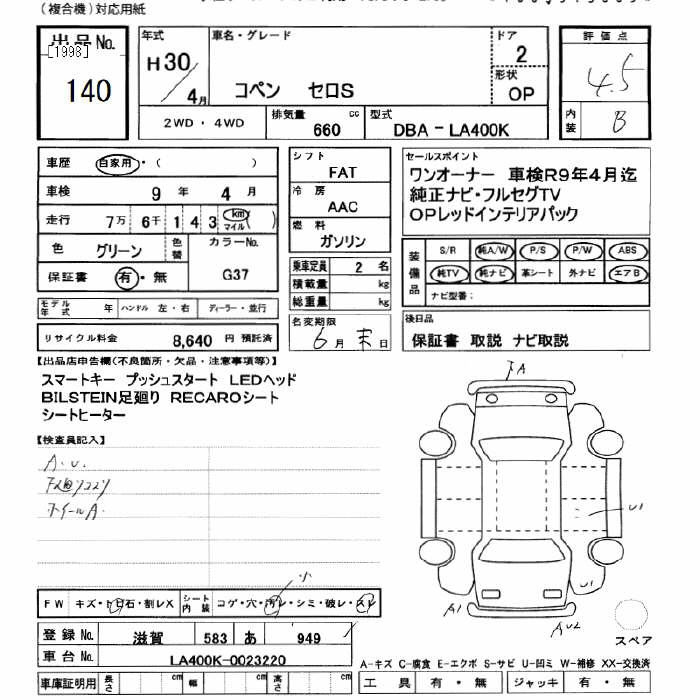 (複合機)対応用紙
出品No.
[1998]
140
年式
H30/4月
車名・グレード
コペン セロS
ドア
2
形状
OP
評価点
4.5
内装
B
2WD・4WD
排気量 660 cc
型式 DBA-LA400K
車歴 自家用・( )
車検 9年 4月
走行 7万 6千 1 4 3 km マイル ( )
色 グリーン 色替 カラーNo. G37
保証書 有・無
モデル年式 年 ハンドル 左・右 ディーラー・並行
リサイクル料金 8,640 円 預託済
シフト
FAT
冷房
AAC
燃料
ガソリン
乗車定員 2 名
積載量 kg
総重量 kg
名変期限
6月末日
セールスポイント
ワンオーナー 車検R9年4月迄
純正ナビ・フルセグTV
OPレッドインテリアパック
装備品
S/R 純A/W P/S P/W ABS
純TV 純ナビ 革シート 外ナビ エアB
ナビ型番:
後日品
保証書 取説 ナビ取説
【出品店申告欄(不良箇所・欠品・注意事項等)】
スマートキー プッシュスタート LEDヘッド
BILSTEIN足廻り RECAROシート
シートヒーター
【検査員記入】
A.U.
ホイールA.
A
U1
U1
A1
AU2
スペア
小
FW キズ・ト石・割レX シート内装 コゲ・穴・汚レ・シミ・破レ・スレ
登録No. 滋賀 583 あ 949
車台No. LA400K-0023220
車庫証明用 長さ cm 幅 cm 高さ cm
A-キズ C-腐食 E-エクボ S-サビ U-凹ミ W-補修 XX-交換済
工具 有・無 ジャッキ 有・無